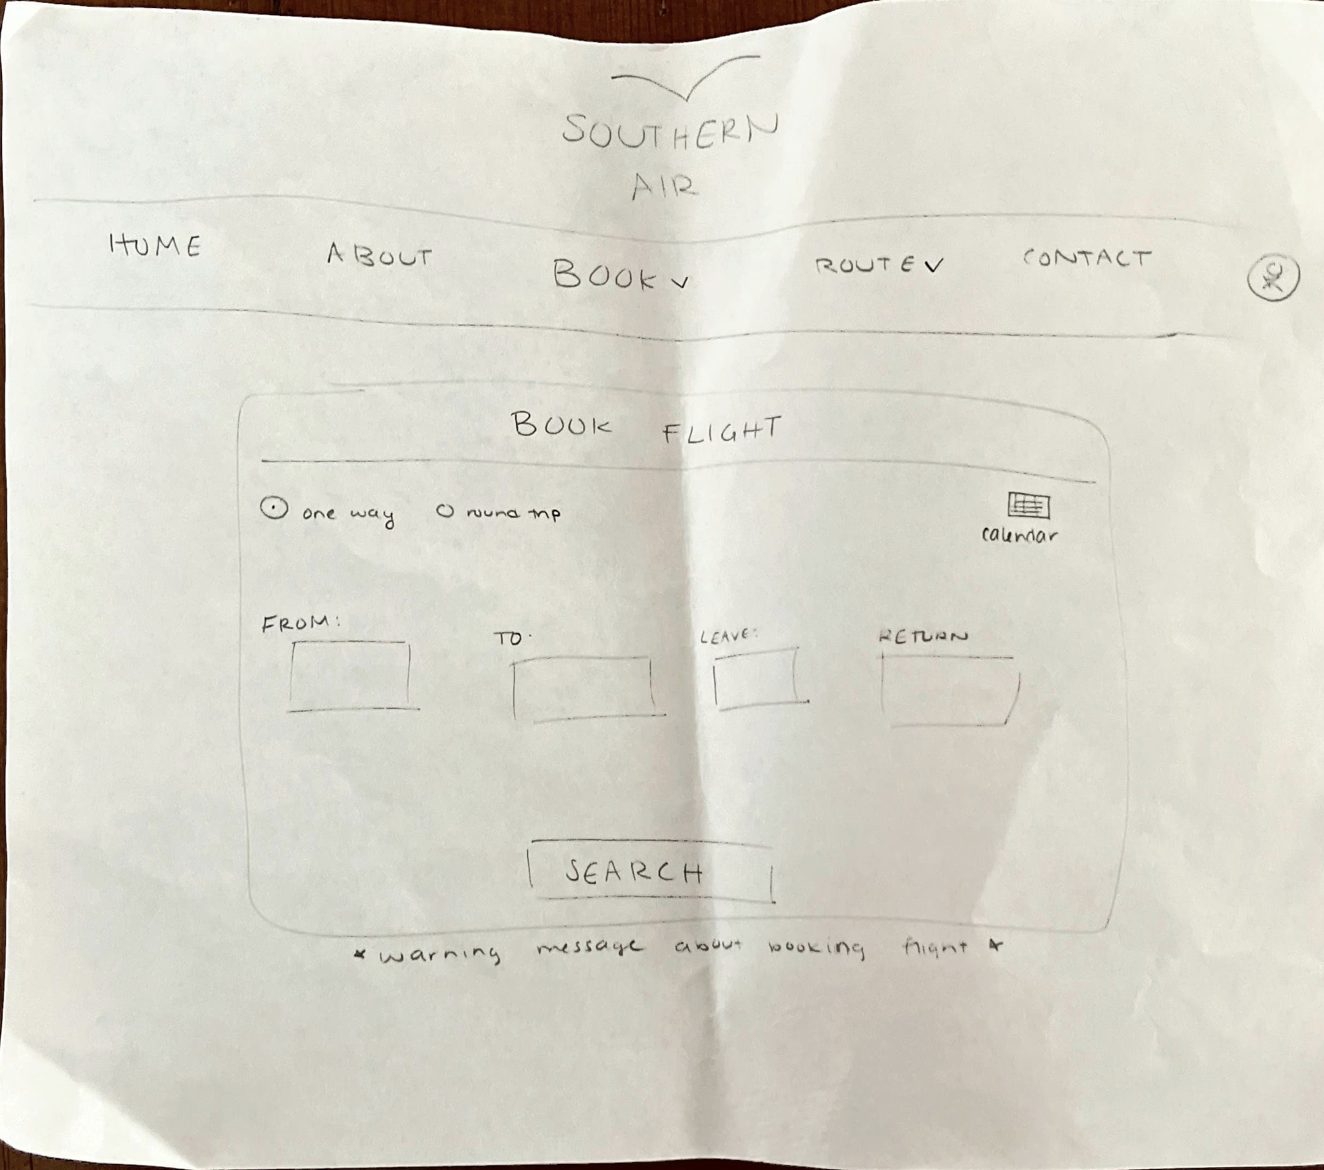 SOUTHERN
AIR
HOME ABOUT BOOK ROUTE CONTACT
BOOK FLIGHT
one way round trip
calendar
FROM: TO: LEAVE: RETURN
SEARCH
* warning message about booking flight *